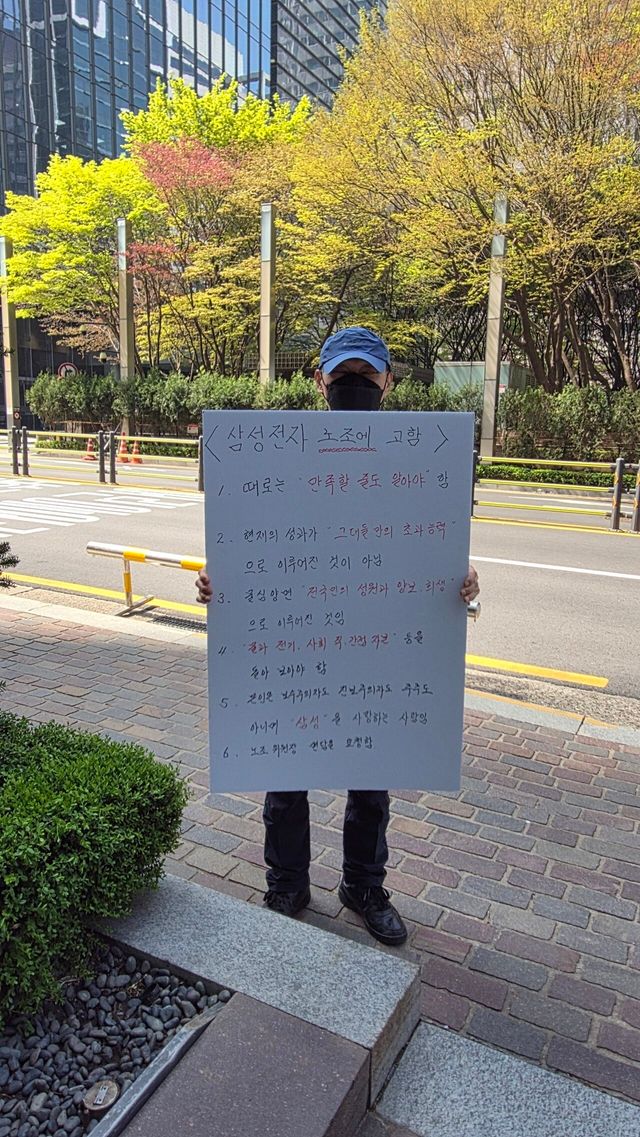 <삼성전자 노조에 고함>
1. 때로는 "만족할 줄도 알아야" 함
2. 현재의 성과가 "그대들만의 초과능력"
으로 이루어진 것이 아님
3. 중심앙엔 "전국민의 성원과 양보, 희생"
으로 이루어진 것임
4. "물과 전기, 사회 직,간접 자본" 등을
돌아 보아야 함
5. 본인은 보수주의자도 진보주의자도 주주도
아니며 "삼성"을 사랑하는 사람임
6. 노조 위원장 면담을 요청함